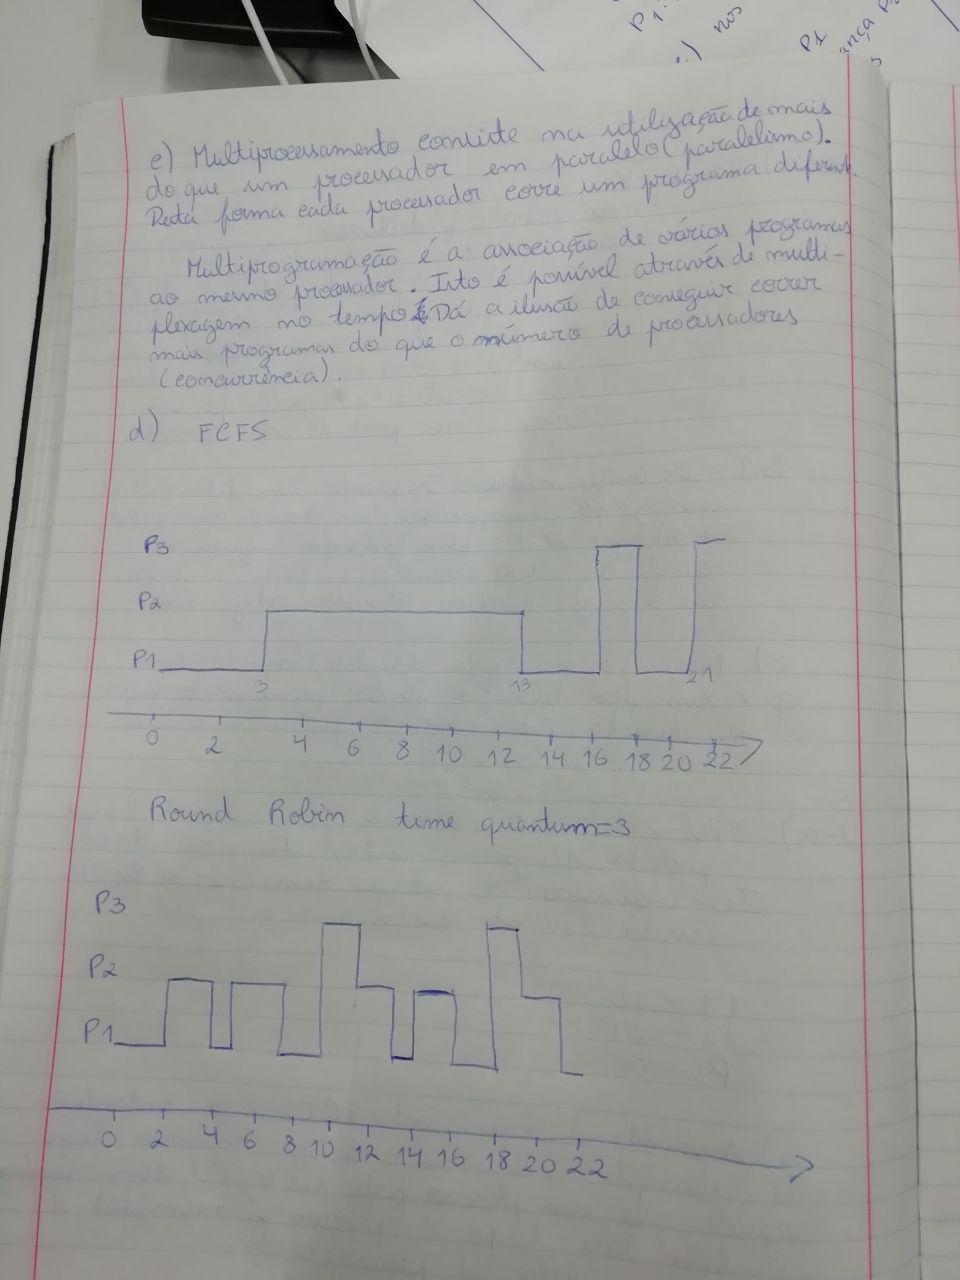 P1.
c) nos
P1
ança P2
e) Multiprocessamento consiste na utilização de mais
do que um processador em paralelo (paralelismo).
Desta forma cada processador corre um programa diferente.
Multiprogramação é a associação de vários programas
ao mesmo processador. Isto é possível através de multi-
plexagem no tempo. Dá a ilusão de conseguir correr
mais programas do que o número de processadores
(concurrência).
d) FCFS
P3
P2
P1
3 13 21
0 2 4 6 8 10 12 14 16 18 20 22
Round Robin time quantum=3
P3
P2
P1
0 2 4 6 8 10 12 14 16 18 20 22